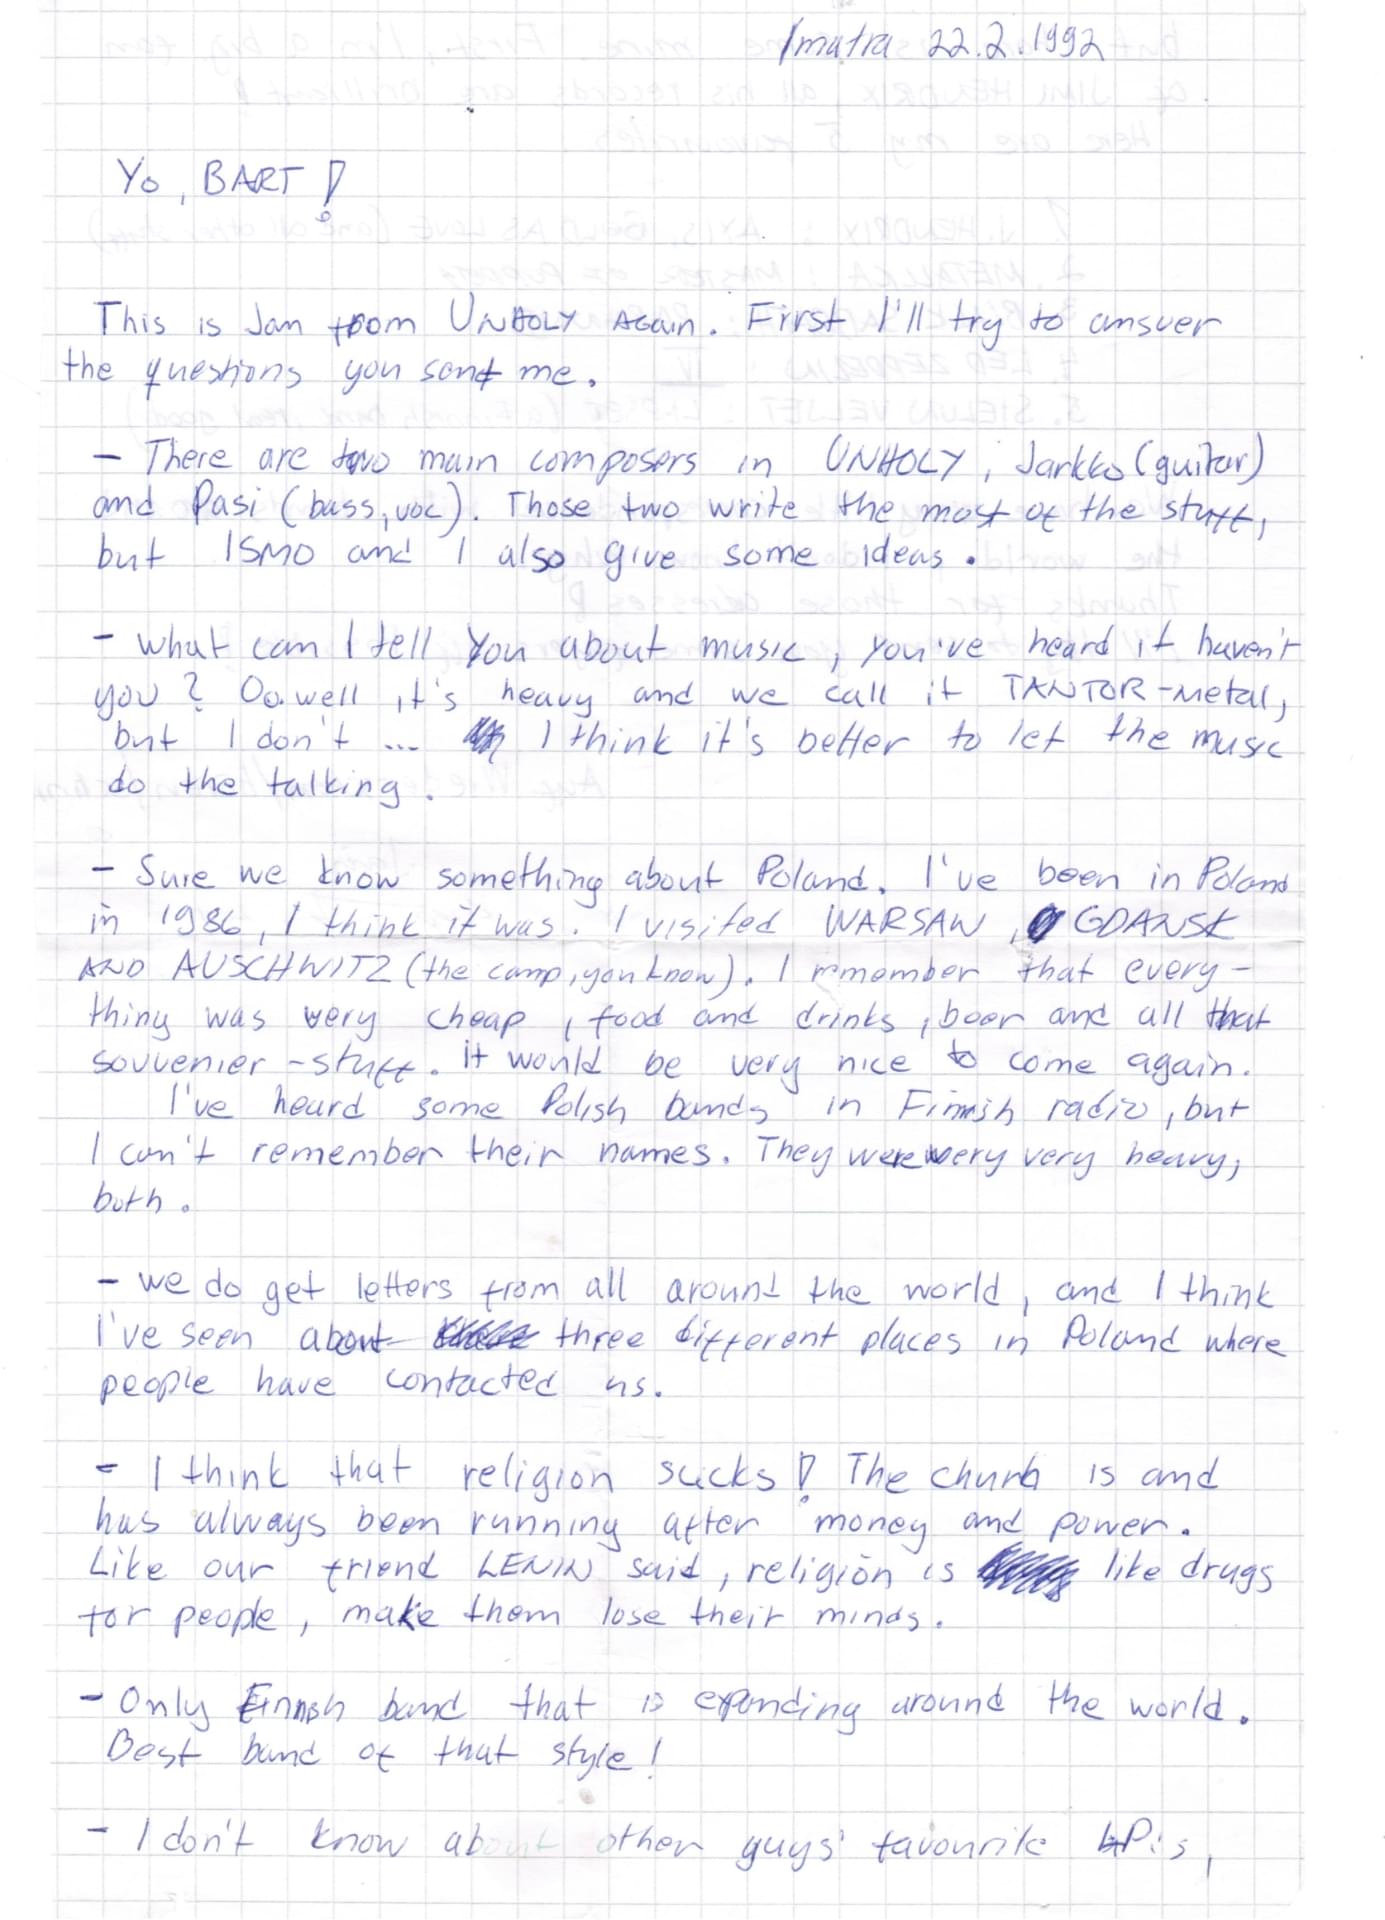 Imatra 22.2.1992
Yo, BART!
This is Jan from UNHOLY AGain. First I'll try to answer
the questions you sent me.
- There are two main composers in UNHOLY, Jarkko (guitar)
and Pasi (bass, voc). Those two write the most of the stuff,
but ISMO and I also give some ideas.
- What can I tell you about music, you've heard it haven't
you? Oo.well it's heavy and we call it TANTOR-metal,
but I don't ... I think it's better to let the music
do the talking.
- Sure we know something about Poland. I've been in Poland
in 1986, I think it was. I visited WARSAW, GDANSK
AND AUSCHWITZ (the camp, you know). I remember that every-
thing was very cheap, food and drinks, beer and all that
souvenier-stuff. it would be very nice to come again.
I've heard some Polish bands in Finnish radio, but
I can't remember their names. They were very very heavy,
both.
- we do get letters from all around the world, and I think
I've seen about three different places in Poland where
people have contacted us.
- I think that religion sucks! The churh is and
has always been running after money and power.
Like our friend LENIN said, religion is like drugs
for people, make them lose their minds.
- Only Finnish band that is expanding around the world.
Best band of that style!
- I don't know about other guys' favourite LP:s,